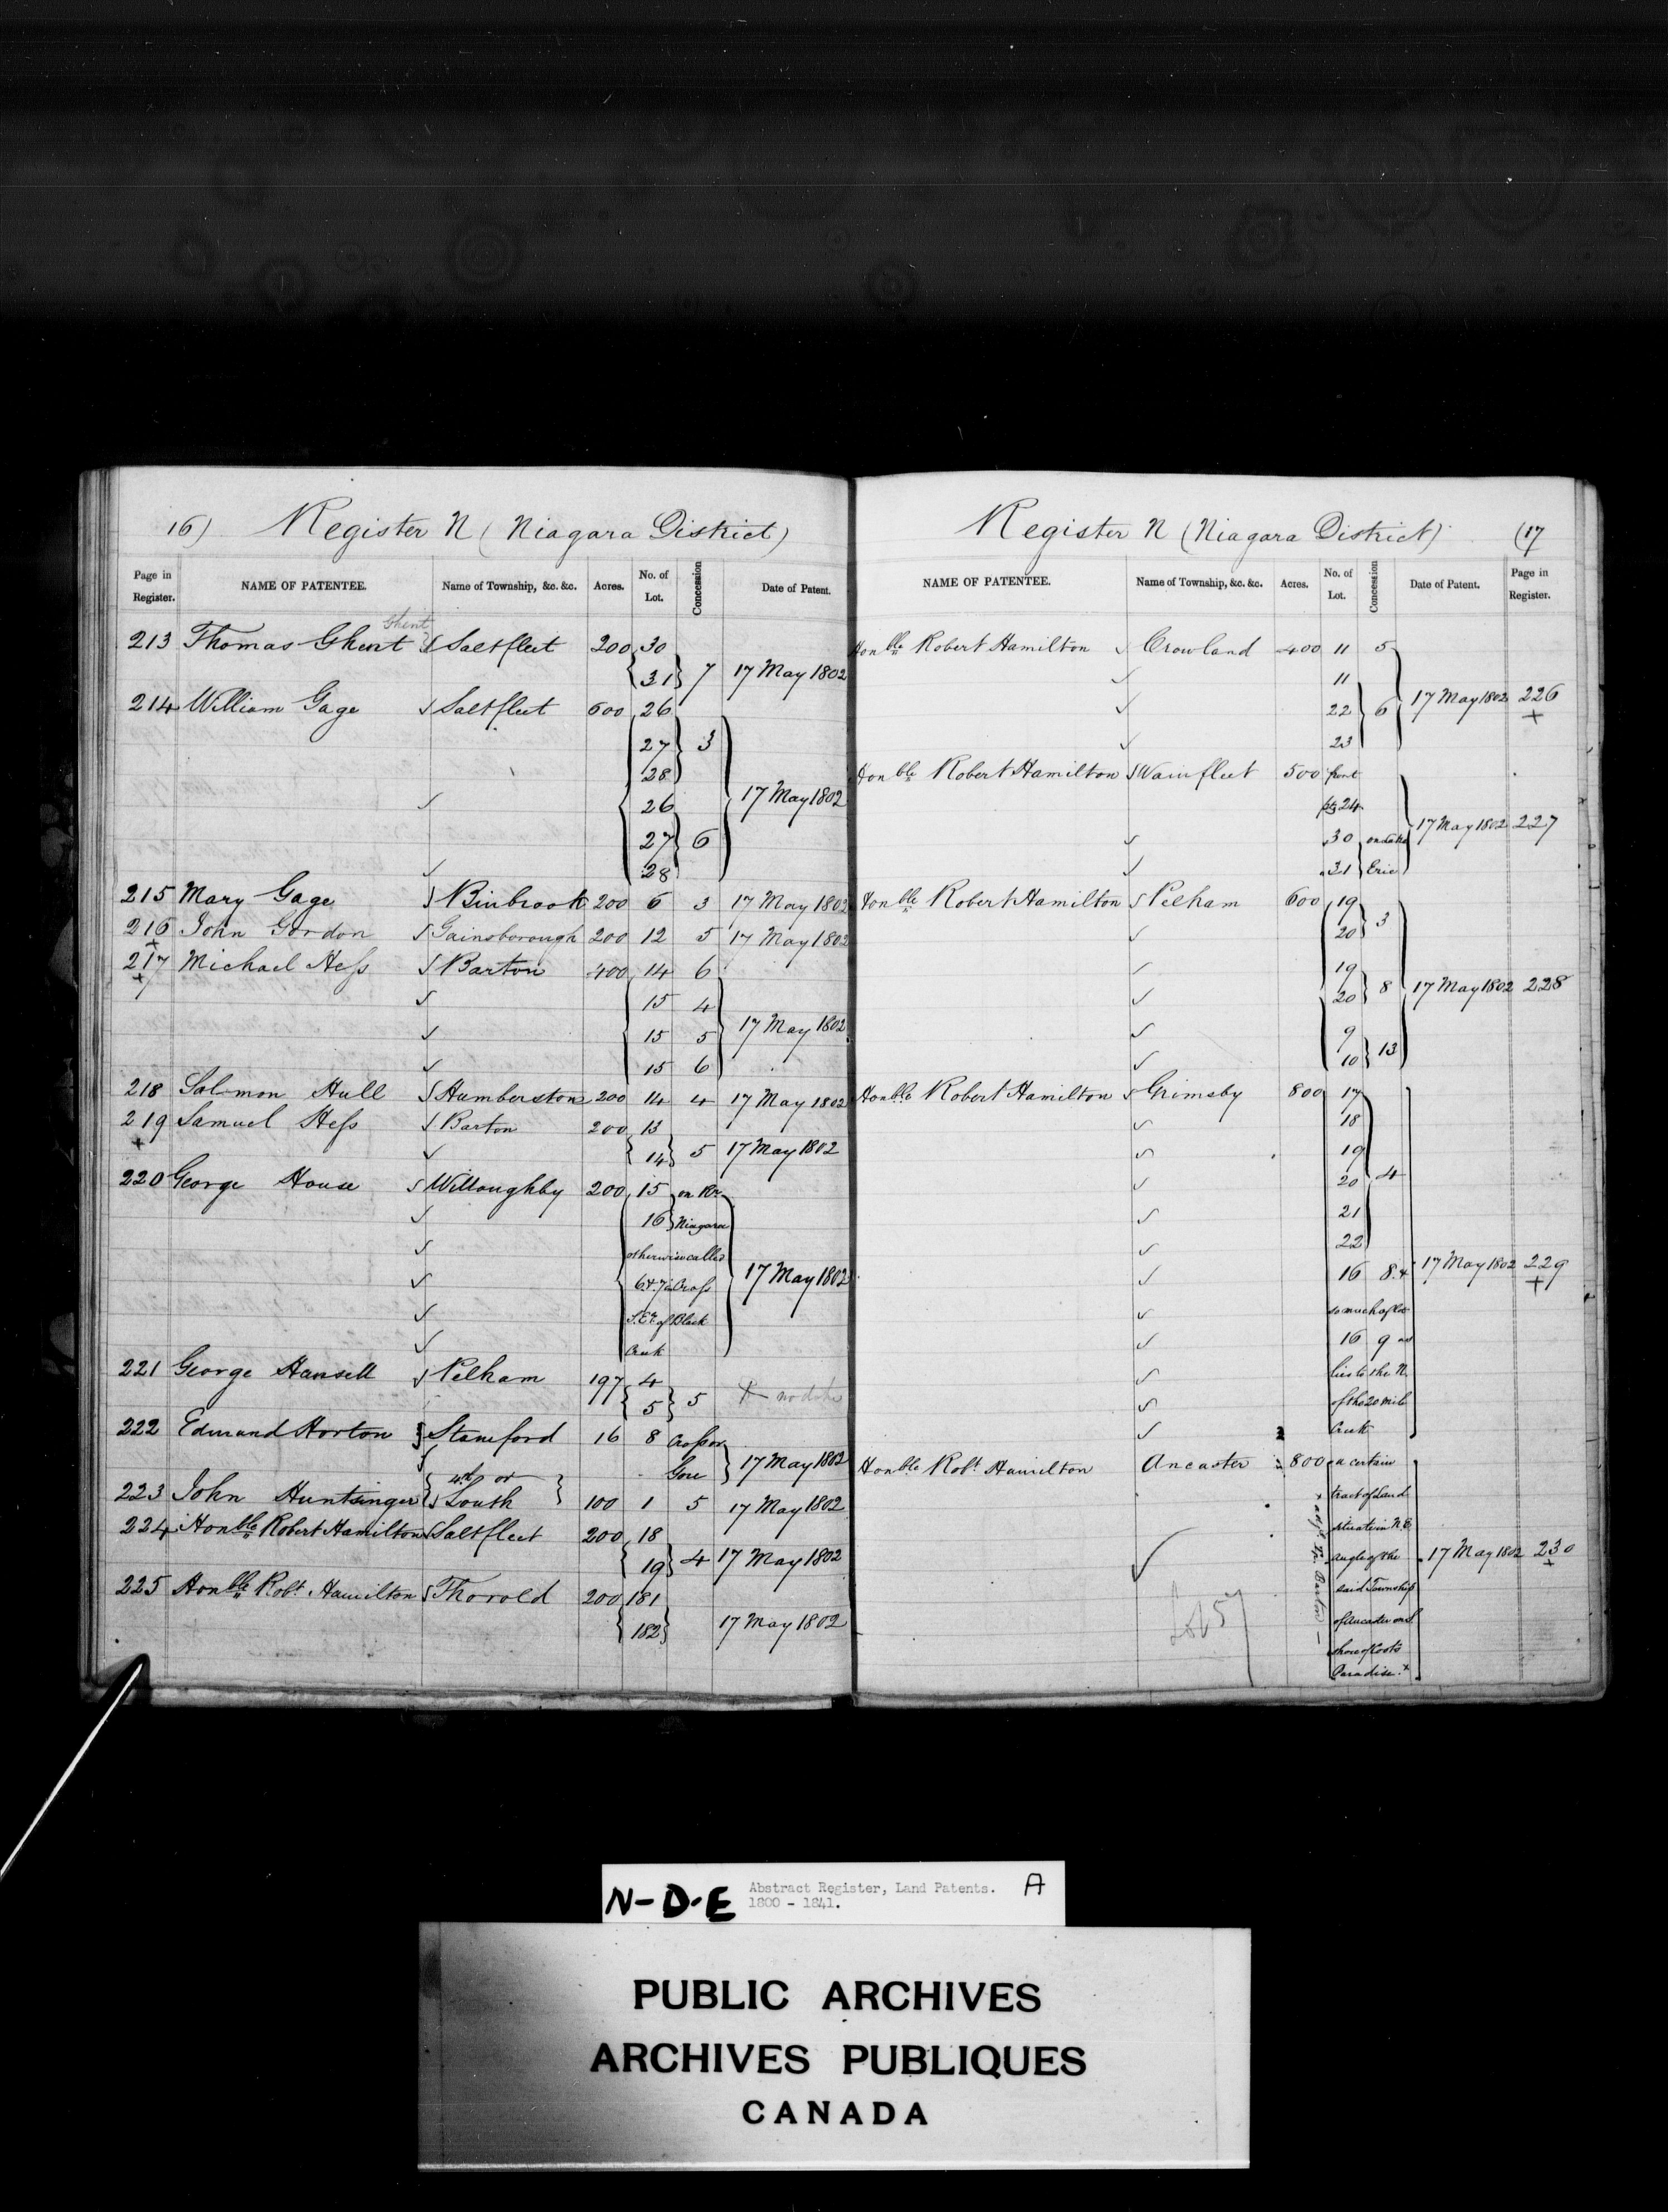 16) Register N (Niagara District)
Page in Register. NAME OF PATENTEE. Name of Township, &c. &c. Acres. No. of Lot. Concession Date of Patent.
Ghent
213 Thomas Ghent Saltfleet 200 30
31 7 17 May 1802
214 William Gage Saltfleet 600 26
27 3
28
26 17 May 1802
27 6
28
215 Mary Gage Binbrook 200 6 3 17 May 1802
216 John Gordon Gainsborough 200 12 5 17 May 1802
217 Michael Hess Barton 400 14 6
15 4
15 5 17 May 1802
15 6
218 Solomon Hull Humberston 200 14 4 17 May 1802
219 Samuel Hess Barton 200 13
14 5 17 May 1802
220 George House Willoughby 200 15 on Rr.
16 Niagara
otherwise called
6 & 7 in Cross 17 May 1802
S.Er. of Black
Creek
221 George Hansell Pelham 197 4
5 5 no date
222 Edmund Horton Stamford 16 8 Cross or
Gore 17 May 1802
223 John Huntsinger Louth 100 1 5 17 May 1802
224 Honble Robert Hamilton Saltfleet 200 18
19 4 17 May 1802
225 Honble Robt. Hamilton Thorold 200 181
182 17 May 1802
Register N (Niagara District) (17
NAME OF PATENTEE. Name of Township, &c. &c. Acres. No. of Lot. Concession Date of Patent. Page in Register.
Honble Robert Hamilton Crowland 400 11 5
11
22 6 17 May 1802 226
23
Honble Robert Hamilton Wainfleet 500 front
24
30 on Lake 17 May 1802 227
31 Erie
Honble Robert Hamilton Pelham 600 19
20 3
19
20 8 17 May 1802 228
9
10 13
Honble Robert Hamilton Grimsby 800 17
18
19
20 4
21
22
16 8.& 17 May 1802 229
so much of Lot
16 9 as
lies to the N.
of the 20 mile
Creek
Honble Robt. Hamilton Ancaster 800 a certain
tract of Land
situate in N.E.
angle of the 17 May 1802 230
said Township
of Ancaster on S
shore of Coots
Paradise. x
Lot 57
N-D-E Abstract Register, Land Patents. A
1800 - 1841.
PUBLIC ARCHIVES
ARCHIVES PUBLIQUES
CANADA